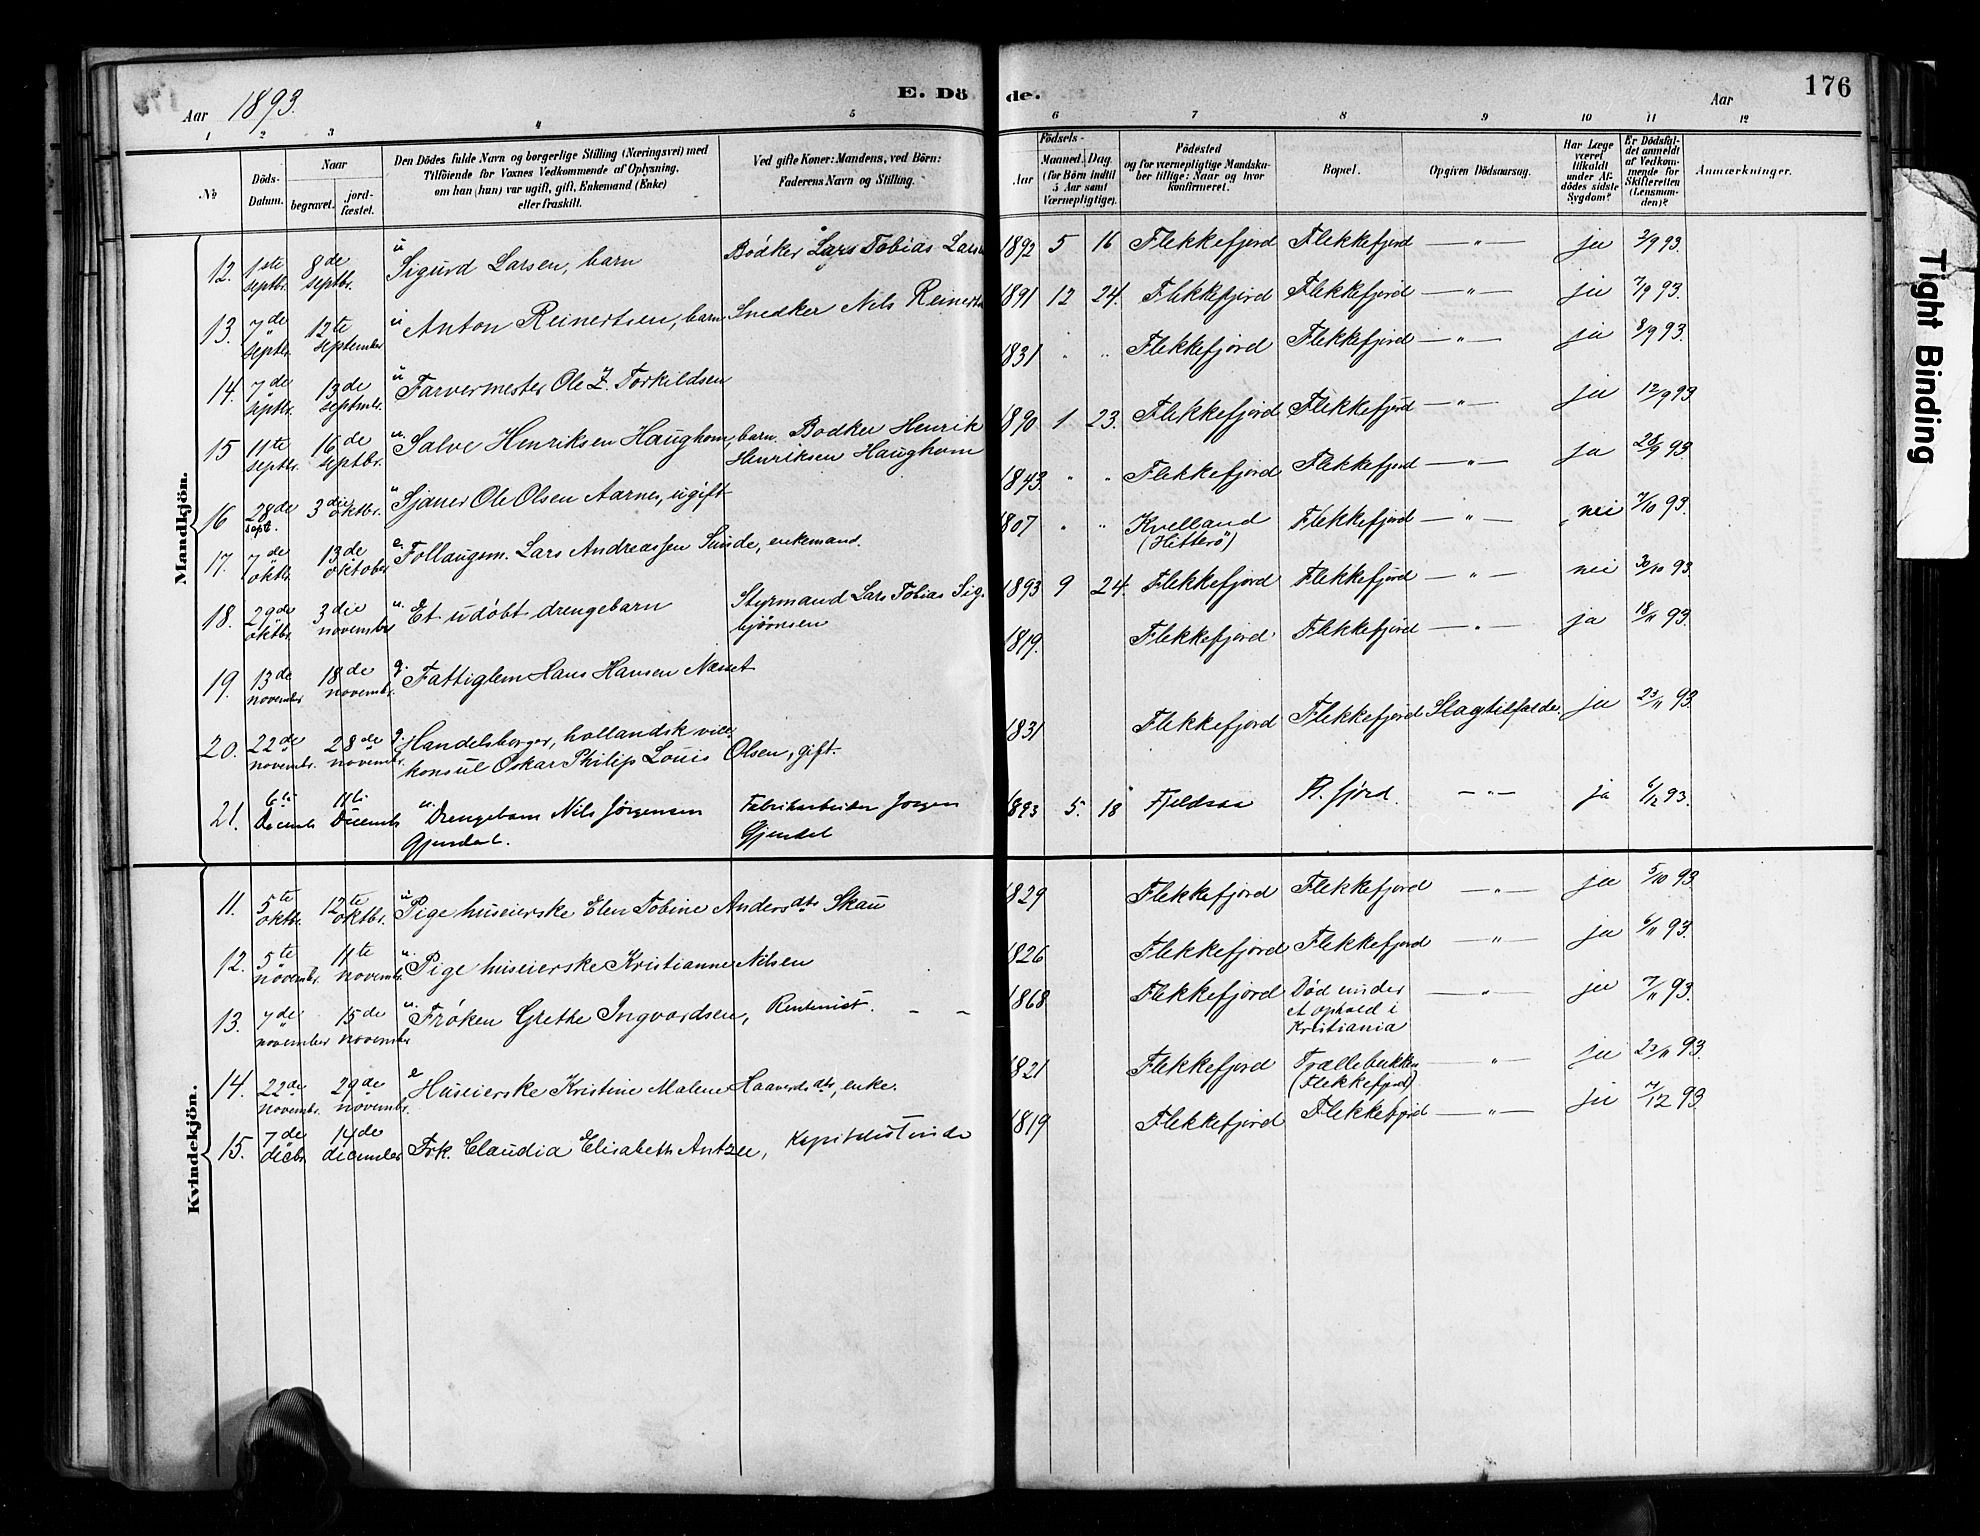 Aar 1893.
E. Dö de.
Aar
176
1 2 3 4 5 6 7 8 9 10 11 12
№
Döds-Datum.
Naar begravet. jordfæstet.
Den Dödes fulde Navn og borgerlige Stilling (Næringsvei) med Tilföiende for Voxnes Vedkommende af Oplysning, om han (hun) var ugift, gift, Enkemand (Enke) eller fraskilt.
Ved gifte Koner: Mandens, ved Börn: Faderens Navn og Stilling.
Födsels-
Aar Maaned. Dag. (for Börn indtil 5 Aar samt Værnepligtige).
Födested og for værnepligtige Mandskaber tillige: Naar og hvor konfirmeret.
Bopæl.
Opgiven Dödsaarsag.
Har Læge været tilkaldt under Afdödes sidste Sygdom?
Er Dödsfaldet anmeldt af Vedkommende for Skifteretten (Lensmanden)?
Anmærkninger.
Tight Binding
Mandkjön.
12. 1ste septbr. 8de septbr. u Sigurd Larsen, barn Bødker Lars Tobias Larsen 1892 5 16 Flekkefjord Flekkefjord — " — ja 2/9 93.
13. 7de septbr. 12te september u Anton Reinertsen, barn Snedker Nils Reinertsen 1891 12 24. Flekkefjord Flekkefjord — " — ja 7/9 93.
14. 7de septbr. 13de septembr. u Farvermester Ole Z. Torkildsen 1831 " " Flekkefjord Flekkefjord — " — ja 8/9 93.
15 11te septbr. 16de septbr. u. Salve Henriksen Haughom, barn. Bødker Henrik Henriksen Haughom 1890 1 23. Flekkefjord Flekkefjord — " — ja 12/9 93
16 28de sept. 3die oktbr. u Sjauer Ole Olsen Aarnes, ugift 1843. " " Flekkefjord Flekkefjord — " — ja 28/9 93.
17. 7de oktbr. 13de oktober e. Follaugsm. Lars Andreassen Sunde, enkemand. 1807 " " Kvelland (Hitterö) Flekkefjord — " — nei 7/10 93.
18. 29de oktbr. 3die novembr. u. Et udøbt drengebarn Styrmand Lars Tobias Sigbjørnsen 1893 9 24. Flekkefjord Flekkefjord — " — nei 30/10 93.
19. 13de november 18de novembr. g. Fattiglem Hans Hansen Næset 1819. Flekkefjord Flekkefjord — " — ja 18/11 93.
20. 22de novembr. 28de novembr. g. Handelsborger, hollandsk vice konsul Oskar Philip Louis Olsen, gift. 1831 Flekkefjord Flekkefjord Slagtilfælde. ja 23/11 93.
21. 6te Decembr 11te Decembr u. Drengebarn Nils Jørgensen Gjendal. Fabrikarbeider Jørgen Gjendal 1893 5. 18 Fjeldsaa Fl. fjord. — " — ja 6/12 93.
Kvindekjön.
11. 5te oktbr. 12te oktbr. u Pige huseierske Elen Tobine Andersdtr Skau 1829 Flekkefjord Flekkefjord — " — ja 5/10 93
12. 5te novembr. 11te novembr. u. Pige huseierske Kristianne Nilsen 1826 Flekkefjord Flekkefjord — " — ja 6/11 93.
13. 7de november 15de novembr u. Frøken Grethe Ingvardsen, Rentenist. — — 1868 Flekkefjord Død under et ophold i Kristiania — " — ja 7/11 93.
14. 22de novembr. 29de novembr e Huseierske Kristine Malene Haaversdtr, enke. 1821 Flekkefjord Trællebakken (Flekkefjord). — " — ja 23/11 93.
15. 7de decbr 14de december Frk. Claudia Elisabeth Antzee, Kapitalistinde 1819 Flekkefjord Flekkefjord — " — ja 7/12 93